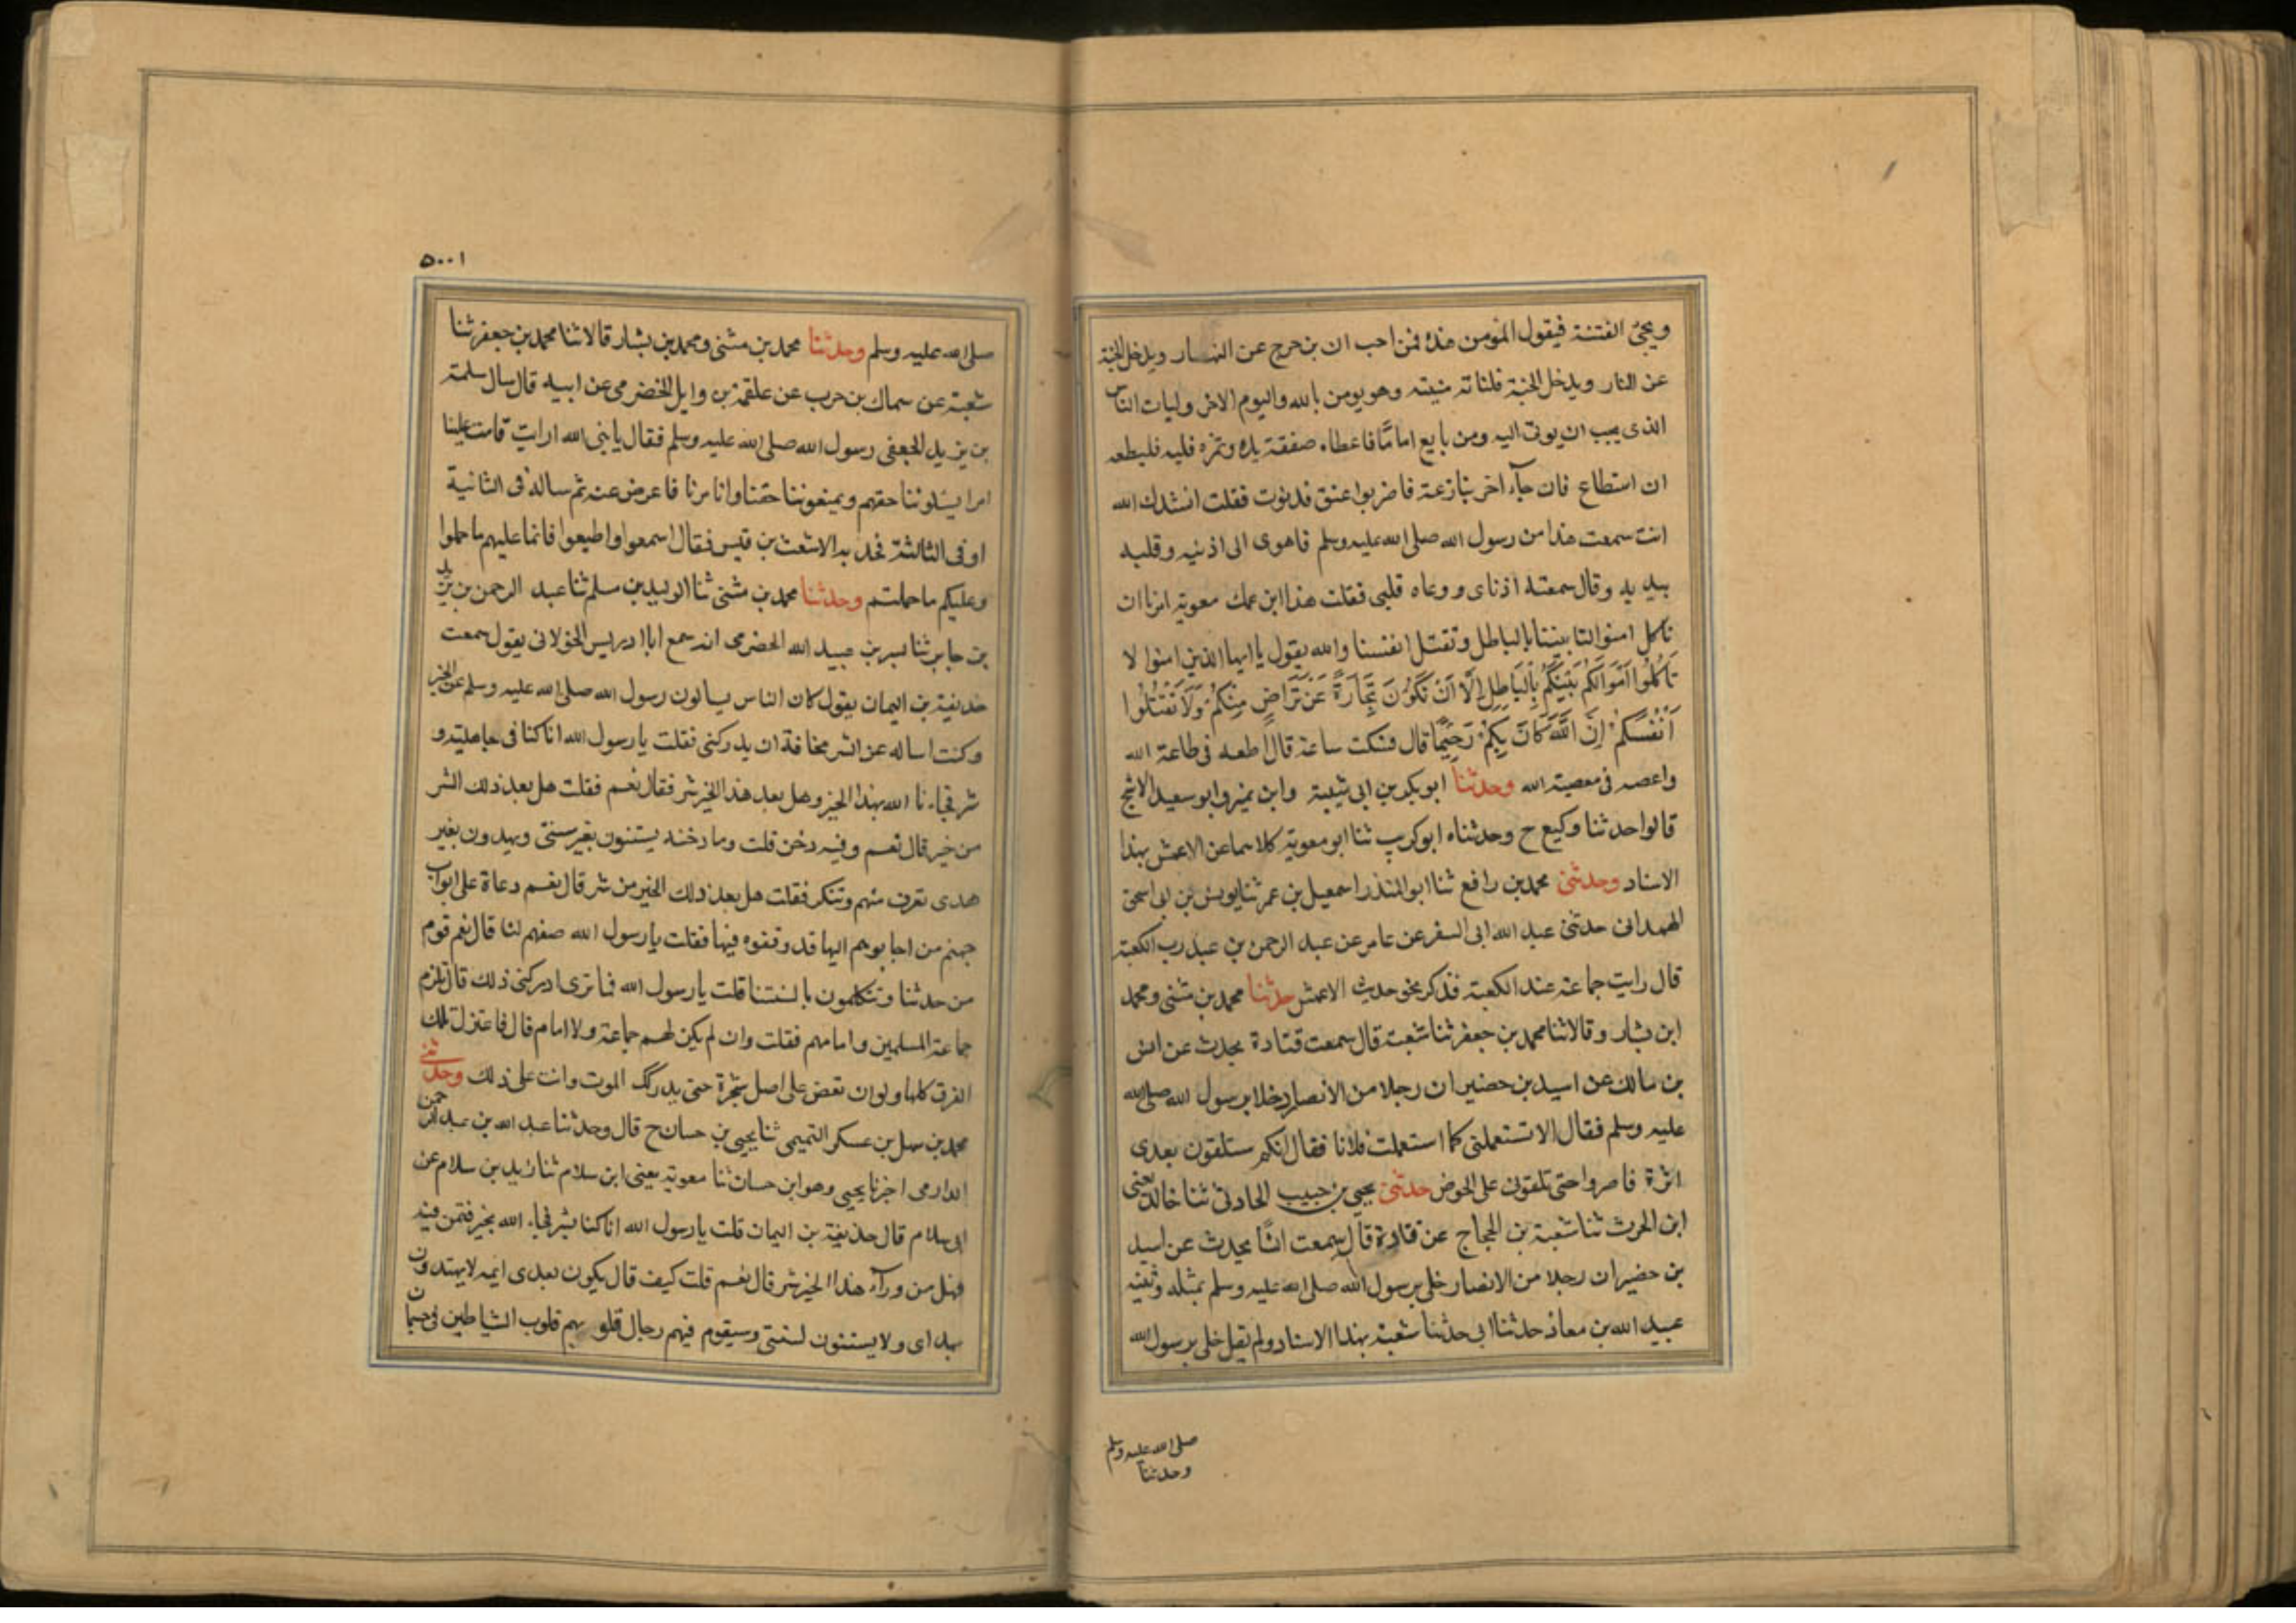 ويجئ الفتنة فيقول المؤمن هذه فمن احب ان يزحزح عن النهار ويدخل الجنة
عن النار ويدخل الجنة فلتاته منيته وهو يومن بالله واليوم الاخر وليات الناس
الذى يحب ان يوتى اليه ومن بايع اماما فاعطاه صفقة يده وثمرة قلبه فليطعه
ان استطاع فان جآء آخر ينازعة فاضربوا عنق فدنوت فقلت انشدك الله
انت سمعت هذا من رسول الله صلى الله عليه وسلم فاهوى الى اذنيه وقلبه
بيديه وقال سمعته اذناى ووعاه قلبى فقلت هذا ابن عمك معوية امرنا ان
ناكل اموالنا بيننا بالباطل وتقتل انفسنا والله يقول يا ايها الذين امنوا لا
تَاكُلُوا اَمْوَالَكُمْ بَيْنَكُمْ بِالْبَاطِلِ اِلَّا اَنْ تَكُوْنَ تِجَارَةً عَنْ تَرَاضٍ مِنْكُمْ وَلَا تَقْتُلُوْا
اَنْفُسَكُمْ اِنَّ اللّٰهَ كَانَ بِكُمْ رَحِيْمًا قال فسكت ساعة قال اطعه فى طاعة الله
واعصه فى معصية الله وحدثنا ابو بكر بن ابى شيبة وابن نمير وابو سعيد الاشج
قالوا حدثنا وكيع ح وحدثناه ابو كريب ثنا ابو معوية كلاهما عن الاعمش بهذا
الاسناد وحدثنى محمد بن رافع ثنا ابو المنذر اسمعيل بن عمر ثنا يونس بن ابى اسحق
الهمدانى حدثنى عبد الله ابى السفر عن عامر عن عبد الرحمن بن عبد رب الكعبة
قال رايت جماعة عند الكعبة فذكر نحو حديث الاعمش حدثنا محمد بن مثنى ومحمد
ابن بشار وقالا ثنا محمد بن جعفر ثنا شعبة قال سمعت قتادة يحدث عن انس
بن مالك عن اسيد بن حضير ان رجلا من الانصار خلا برسول الله صلى الله
عليه وسلم فقال الا تستعملنى كما استعملت فلانا فقال انكم ستلقون بعدى
اثرة فاصبروا حتى تلقونى على الحوض حدثنى يحيى بن حبيب الحارثى ثنا خالد يعنى
ابن الحرث ثنا شعبة بن الحجاج عن قتادة قال سمعت انسًا يحدث عن اسيد
بن حضير ان رجلا من الانصار خلى برسول الله صلى الله عليه وسلم بمثله وثنيه
عبيد الله بن معاذ حدثنا ابى حدثنا شعبة بهذا الاسناد ولم يقل خلى برسول الله
صلى الله عليه وسلم
وحدثنا
٥٠٠١
صلى الله عليه وسلم وحدثنا محمد بن مثنى ومحمد بن بشار قالا ثنا محمد بن جعفر ثنا
شعبة عن سماك بن حرب عن علقمة بن وايل الحضرمى عن ابيه قال سال سلمة
بن يزيد الجعفى رسول الله صلى الله عليه وسلم فقال يا نبى الله ارايت قامت علينا
امرا يسئلوننا حقهم ويمنعوننا حقنا وانا مرنا فاعرض عنه ثم ساله فى الثانية
او فى الثالثة فجذبه الاشعث بن قيس فقال اسمعوا واطيعوا فانما عليهم ما حملوا
وعليكم ما حملتم وحدثنا محمد بن مثنى ثنا الوليد بن سلم ثنا عبد الرحمن بن يزيد
بن جابر ثنا بسر بن عبيد الله الحضرمى انه سمع ابا ادريس الخولانى يقول سمعت
حذيفة بن اليمان يقول كان الناس يسالون رسول الله صلى الله عليه وسلم عن الخير
وكنت اساله عن الشر مخافة ان يدركنى فقلت يا رسول الله انا كنا فى جاهلية و
شر فجاءنا الله بهذا الخير وهل بعد هذا الخير شر فقال نعم فقلت هل بعد ذلك الشر
من خير قال نعم وفيه دخن قلت وما دخنه يستنون بغير سنتى ويهدون بغير
هدى تعرف منهم وتنكر فقلت هل بعد ذلك الخير من شر قال نعم دعاة على ابواب
جهنم من اجابوهم اليها قد وقفوه فيها فقلت يا رسول الله صفهم لنا قال نعم قوم
من حدثنا وتتكلمون بالسنتنا قلت يا رسول الله فما ترى ادركنى ذلك قال تلزم
جماعة المسلمين وامامهم فقلت وان لم يكن لهم جماعة ولا امام قال فاعتزل تلك
الفرق كلها ولو ان تعض على اصل شجرة حتى يدركك الموت وانت على ذلك وحدثنى
محمد بن سهل بن عسكر التميمى ثنا يحيى بن حسان ح قال وحدثنا عبد الله بن عبد الرحمن
الدارمى اخبرنا يحيى وهو ابن حسان ثنا معوية يعنى ابن سلام ثنا زيد بن سلام عن
ابى سلام قال حذيفة بن اليمان قلت يا رسول الله انا كنا بشر فجاء الله بخير فنحن فيه
فهل من ورآء هذا الخير شر قال نعم قلت كيف قال يكون بعدى ايمه لا يهتدون
بهداى ولا يستنون لسنتى وسيقوم فيهم رجال قلوبهم قلوب الشياطين فى جسمان